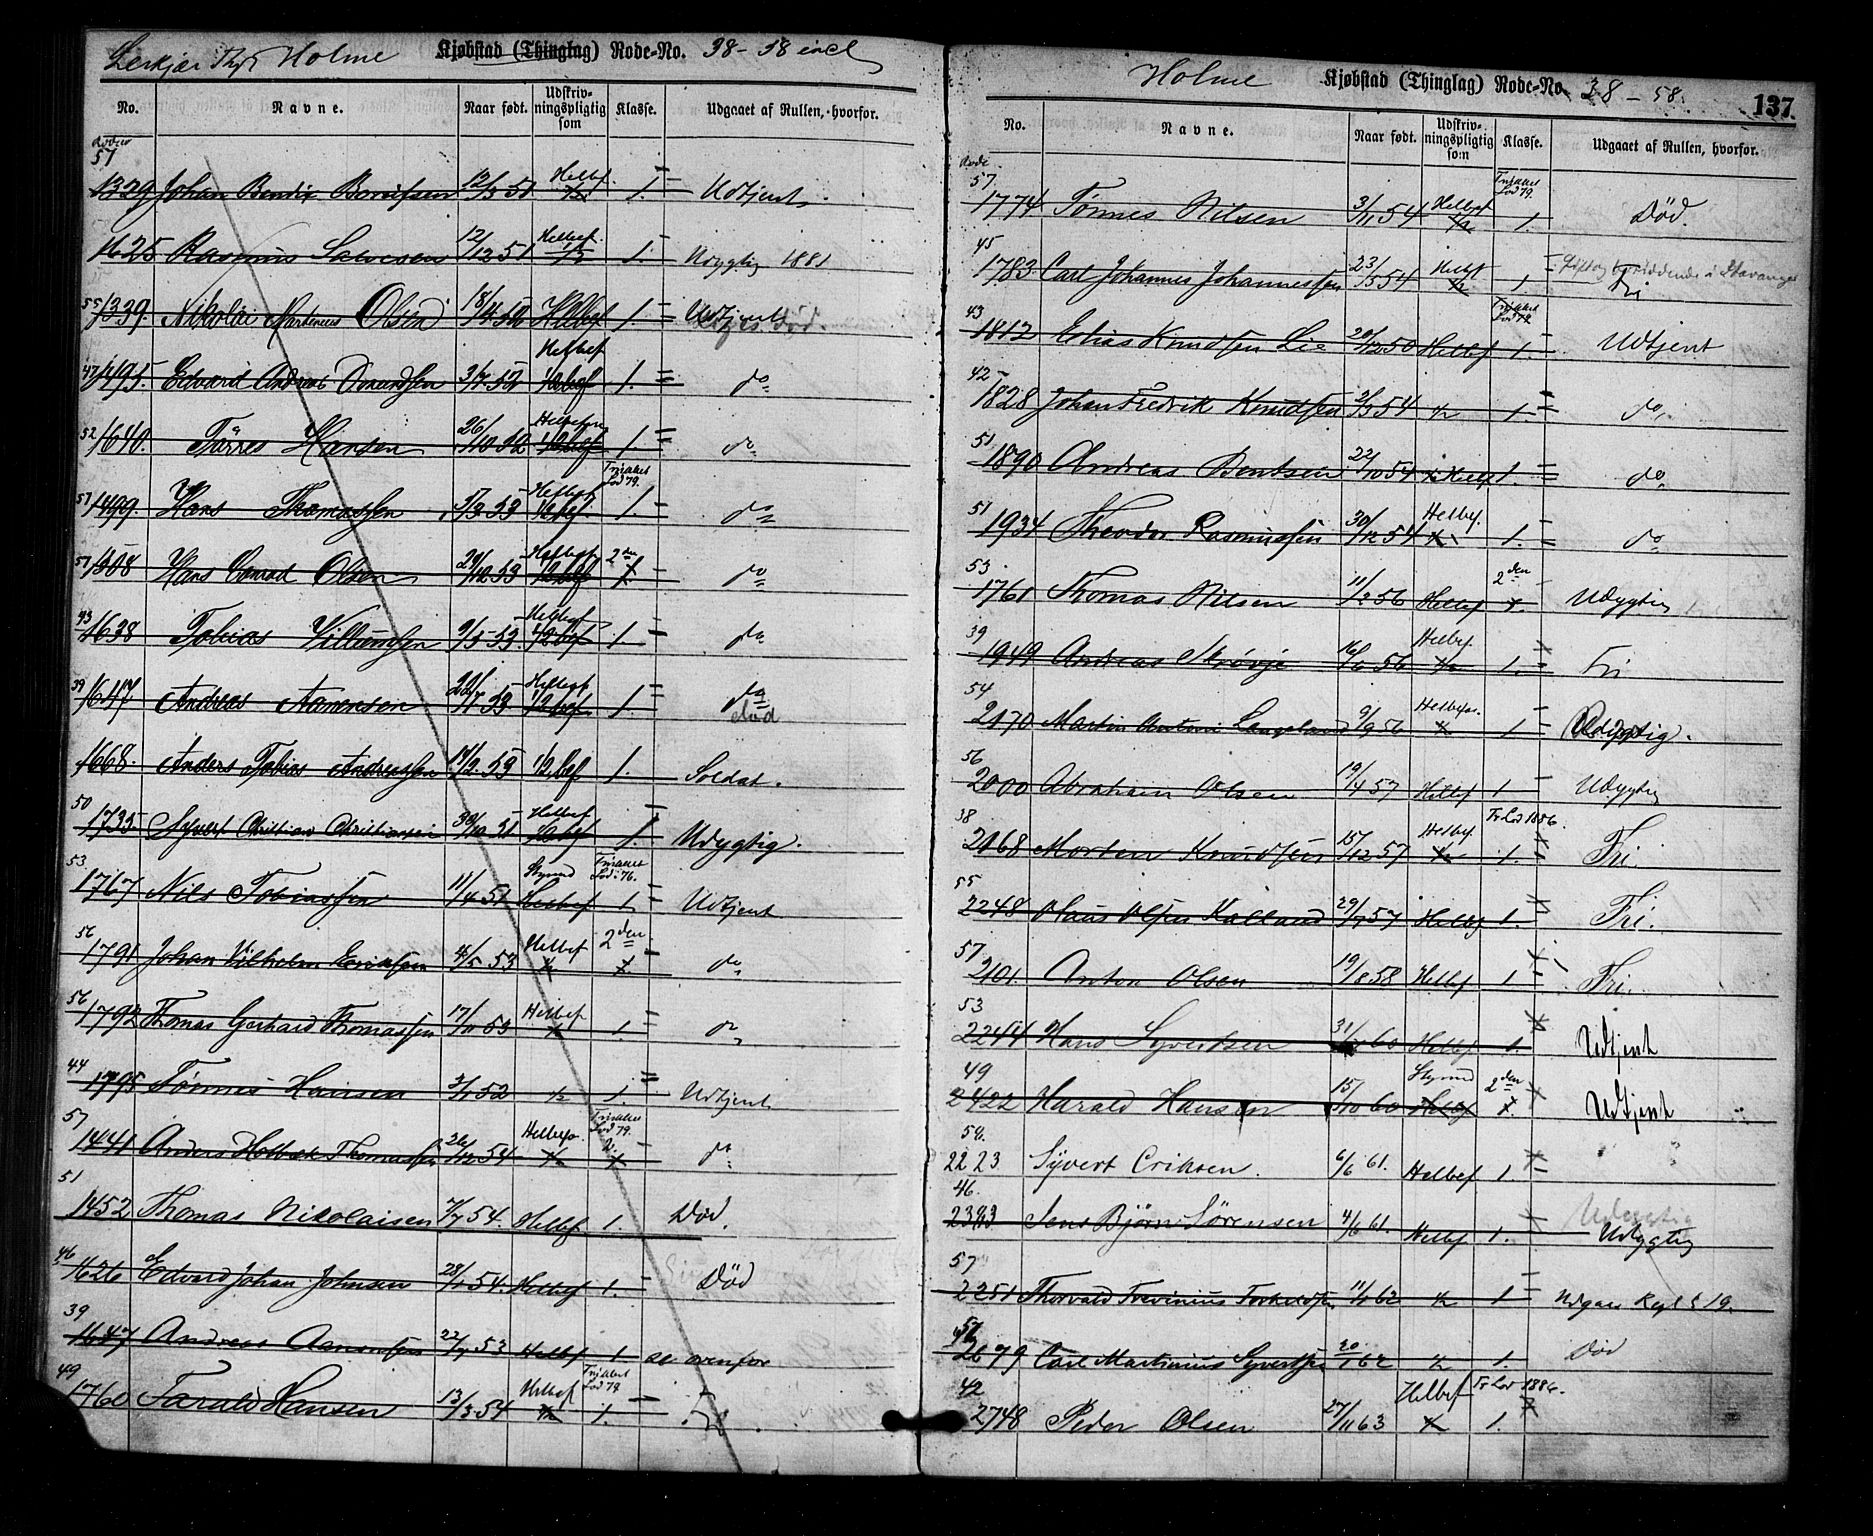 Holme Kjøbstad (Thinglag) Rode-No. 38-58 incl
No. Navne. Naar født. Udskrivningspligtig som Klasse. Udgaaet af Rullen, hvorfor.
57
1329 Johan Bendix 12/3 51 Helbef. 1/2 1. Udtjent.
1625 Rasmus Salvesen 12/12 51 Helbef. 1/2 1. Udygtig 1881
55 1339. Nikolai Martinius Olsen 18/4 52 Helbef 1. Udtjent Død.
47 1495. Edvard Andreas 3/7 52 Helbef 1/2 bef 1. do
52 1640. Tørres Hansen 26/10 52 1/2 bef 1. do
Frijaket Lod 79.
57 1499. Hans Thomassen 5/3 53 Helbef 1/2 bef. 1. do
57 1508 Hans Conrad Olsen 29/12 53 Helbef 1/2 bef 2den 1 do
43 1638 Tobias Villumsen 9/5 53. Helbef 1/2 bef 1. do
39 1647 Andreas Aanensen 22/7 53 Helbef 1/2 bef 1. do
død
1668. Anders Tobias Andreassen 53 1/2 bef 1. Soldat.
50 1735. Syvert Christian Christiansen 30/10 51 Helbef 1/2 bef 1. Udygtig.
53 1767 Nils Tobiassen 11/4 51 Styrmd Helbef Frijaket Lod: 76. 1 Udtjent
56 1791 Johan Vilhelm Eriksen 5 53 Helbef 1/2 2den 1 do
56 1792 Thomas Gerhard Thomassen 17/10 53 Helbef 1. do
44 1795 Tønnes Hansen 3/1 52 1/2 1. Udtjent
57 1441 Anders Holbæk Thomassen 26/12 54 Helbef. 1/2 Frijaket Lod 79. 2 do
51
1452 Thomas Nikolaisen 7/7 54. Helbef 1. Død.
46 1626 Edvard Johan Johnsen 28/1 54. Helbef 1. Død
39
1647 Andreas Aanensen 22/7 53 Helbef 1. se ovenfor
49
1760 Tarald Hansen 13/3 54 Helbef 1/2 Frijaket Lod 79 1. Fri.
Holme Kjøbstad (Thinglag) Rode-No. 38 - 58. 137.
No. Navne. Naar født. Udskrivningspligtig som Klasse. Udgaaet af Rullen, hvorfor.
Rode
57
1774 Tønnes Nilsen 3/11 54 Helbef 1/2 Frijaket Lod 79. 1. Død.
45
1783 Carl Johannes Johannessen 23/3 54 Helbef 1/2 1 Gift og bosiddende i Stavanger
Fri
43
1812 Elias Knudsen Lie 29/12 50 Helbef Frijaket Lod 79. 1. Udtjent
42
1828 Johan Fredrik Knudsen 2/3 54 1/2 1. do.
51
1890 Andreas Bentsen 22/10 54 1/2 Helbef 1. do
51
1934 Theodor Rasmussen 30/12 54 Helbef. 1. do
53
1761 Thomas Nilsen 11/2 56 Helbef 2den 1. Udygtig
39
1949 Andreas Skrøvje 16/6 56 Helbef. 1/2 1. Fri
54
2170 Martin Antoni Langeland 9/9 56 1 Udygtig.
56
2000 Abraham Olsen 19/4 57 Helbef 1 Udygtig
38
2168 Morten Knudsen 15/12 57 Helbef. 1/2 Fr Lod 1886. 1. Fri.
55
2248 Olaus Olsen Kalland 29/7 57 Helbef 1. Fri.
57
2101. Anton Olsen 19/8 58 Helbef 1 Fri.
53
2244 Hans Syvertsen 31/ 60 Helbef 1. Udtjent
49
2422 Harald Hansen 15/10 60 Styrmd Helbef 2den 1. Udtjent
58.
2223. Syvert Eriksen. 6/6 61. Helbef 1.
46.
2383 Jens Bjørn Sørensen 4/6 61. Helbef 1. Udygtig
Udygtig
57
2251 Thorvald 11/1 62 1/2 1 Udgaar Kgl § 19.
2679 Carl Martinius Syvertsen 20/1 62 1/2 1. Død
42
2748 Peder Olsen 27/11 63 Helbef Fr Lod 1886. 1.